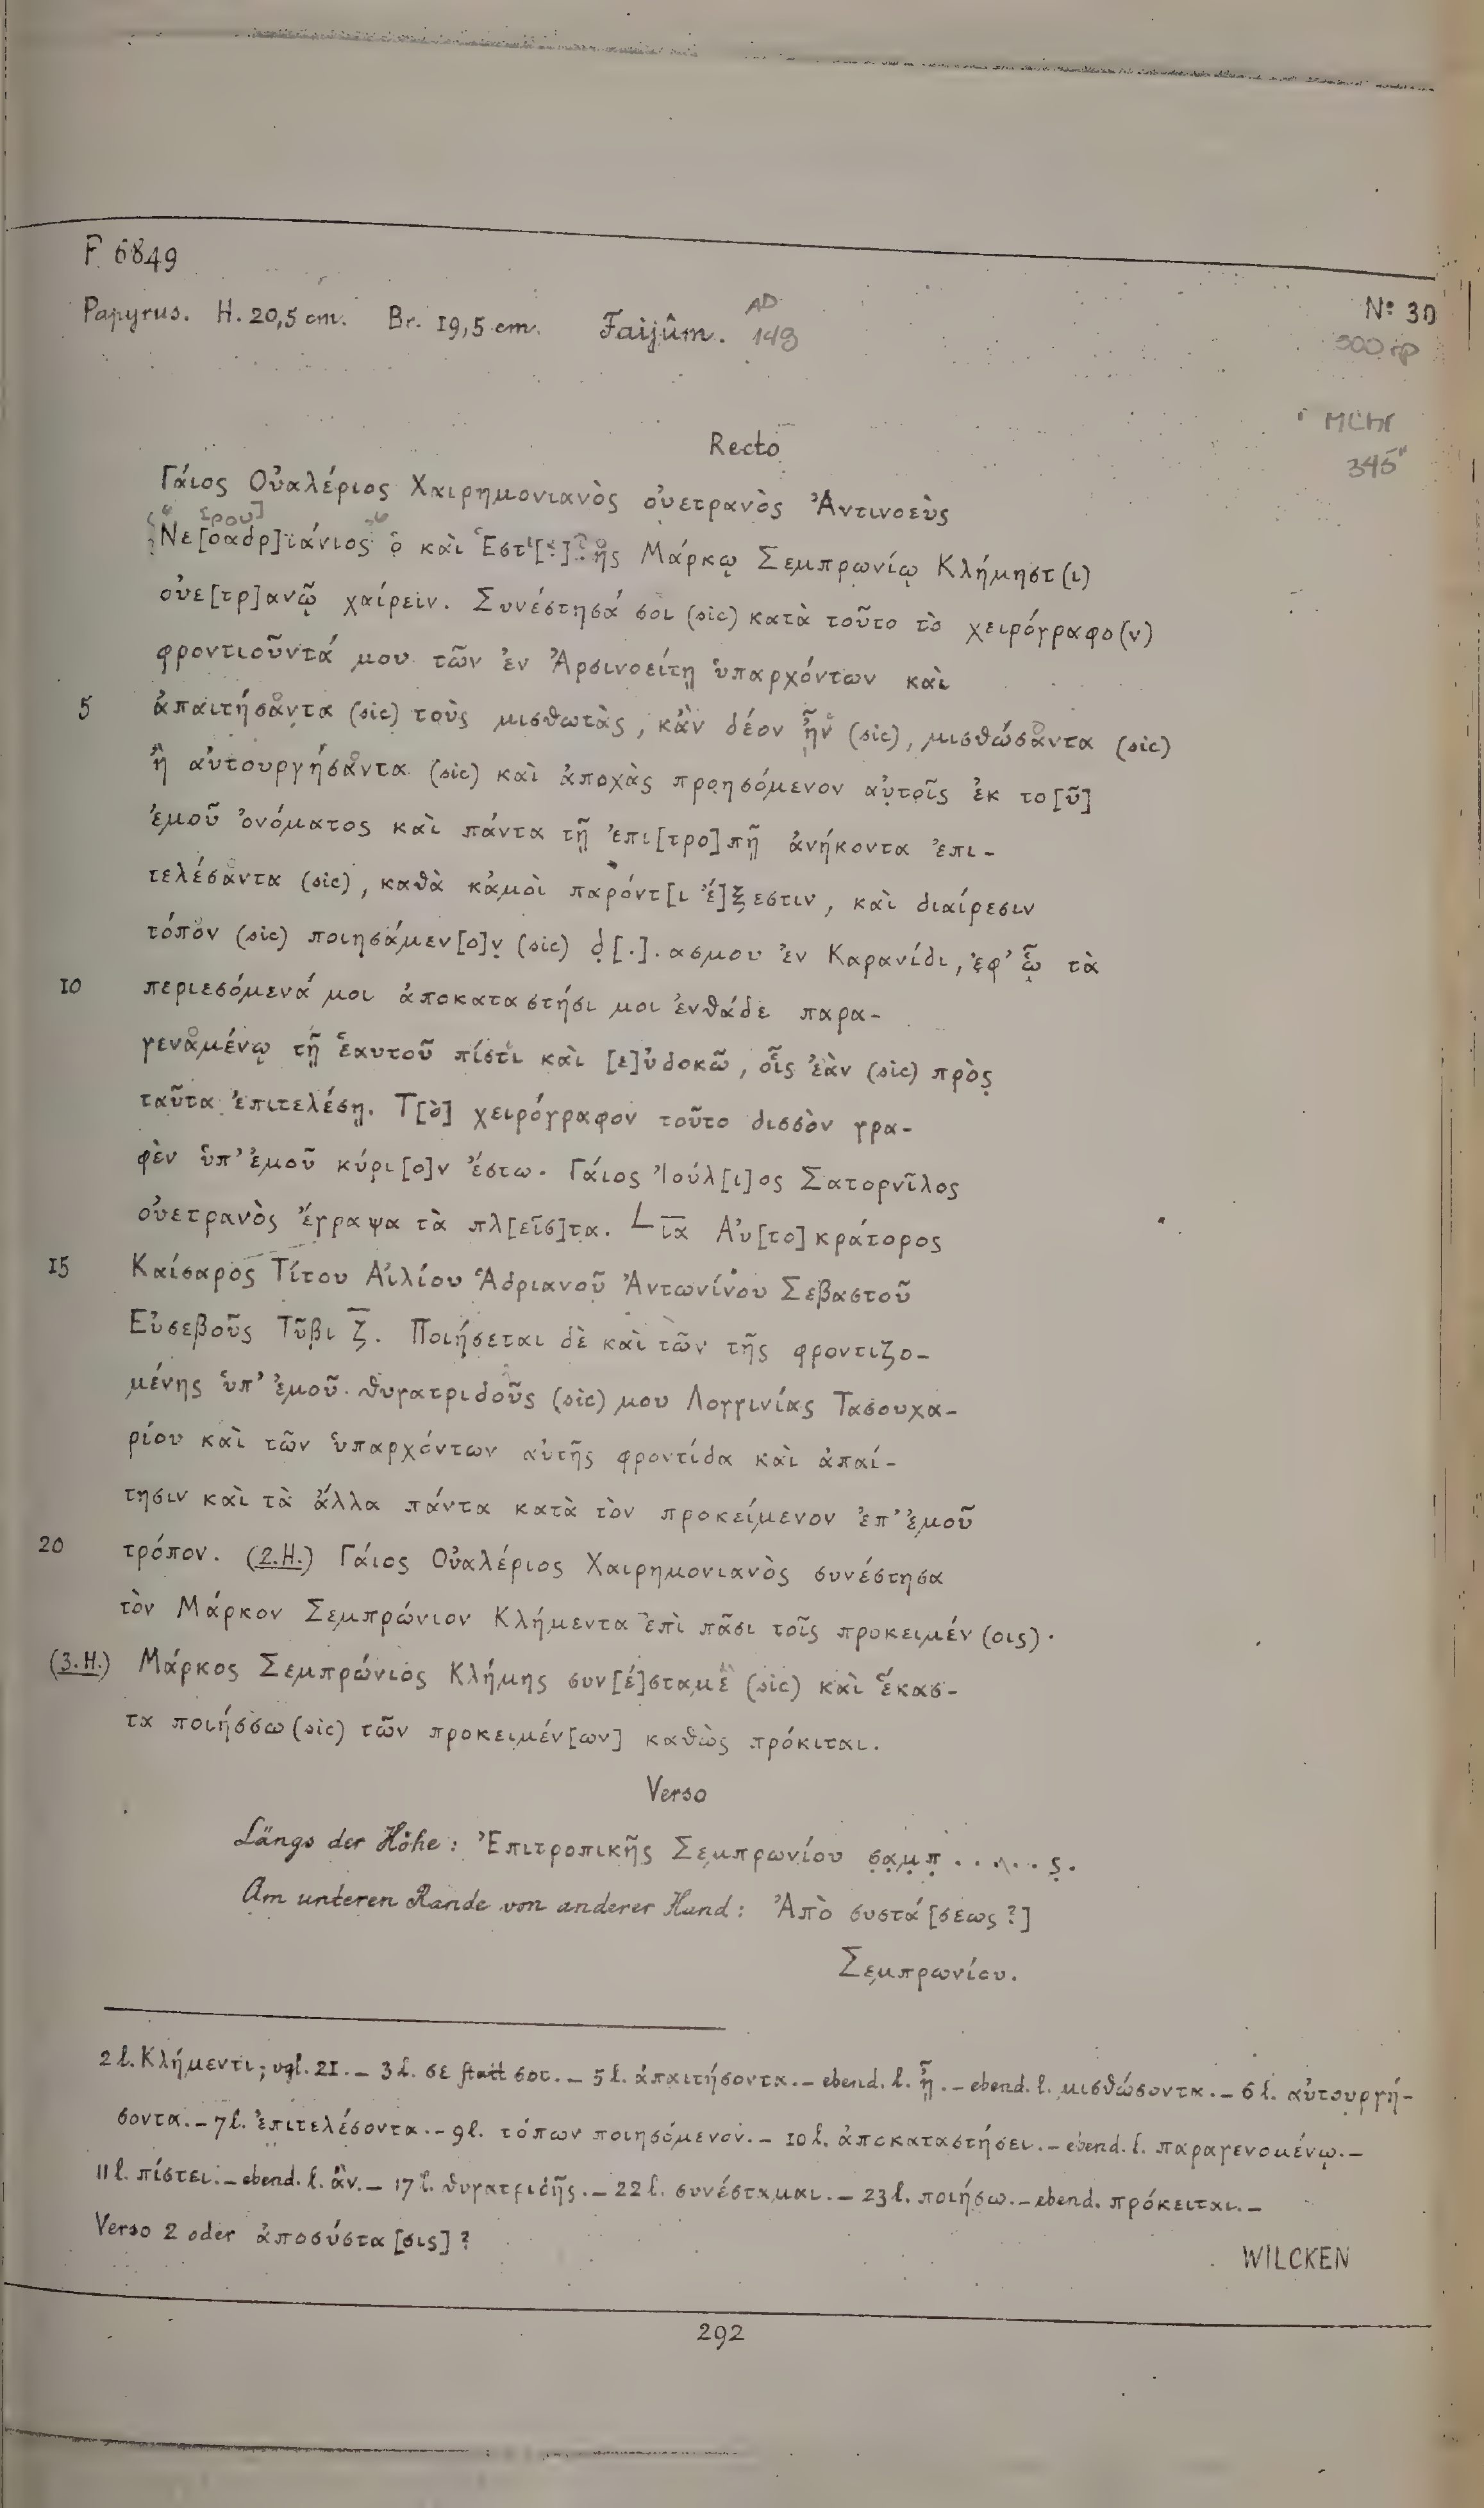 P. 6849
Nº 30
Papyrus. H. 20,5 cm. Br. 19,5 cm. Faijûm.
AD
Recto
Γάιος Οὐαλέριος Χαιρημονιανὸς οὐετρανὸς Ἀντινοεὺς
Νε[οαδρ]ιάνιος ὁ καὶ Μάρκῳ Σεμπρωνίῳ Κλήμηστ(ι)
οὐε[τρ]ανῷ χαίρειν. Συνέστησά σοι (sic) κατὰ τοῦτο τὸ χειρόγραφο(ν)
φροντιοῦντά μου τῶν ἐν Ἀρσινοείτῃ ὑπαρχόντων καὶ
5 ἀπαιτήσαντα (sic) τοὺς μισθωτὰς, κἂν δέον ἦν (sic), μισθώσαντα (sic)
ἢ αὐτουργήσαντα (sic) καὶ ἀποχὰς προησόμενον αὐτοῖς ἐκ το[ῦ]
ἐμοῦ ὀνόματος καὶ πάντα τῇ ἐπι[τρο]πῇ ἀνήκοντα ἐπι-
τελέσαντα (sic), καθὰ κἀμοὶ παρόντ[ι ἔ]ξεστιν, καὶ διαίρεσιν
τόπον (sic) ποιησάμεν[ο]ν (sic) δ̣[.]. ασμου ἐν Καρανίδι, ἐφ᾽ ᾧ τὰ
10 περιεσόμενά μοι ἀποκαταστήσι μοι ἐνθάδε παρα-
γεναμένῳ τῇ ἑαυτοῦ πίστι καὶ [ε]ὐδοκῶ, οἷς ἐὰν (sic) πρὸς
ταῦτα ἐπιτελέσῃ. Τ[ὸ] χειρόγραφον τοῦτο δισσὸν γρα-
φὲν ὑπ᾽ ἐμοῦ κύρι[ο]ν ἔστω. Γάιος Ἰούλ[ι]ος Σατορνῖλος
οὐετρανὸς ἔγραψα τὰ πλ[εῖσ]τα. L ια̅ Αὐ[το]κράτορος
15 Καίσαρος Τίτου Αἰλίου Ἁδριανοῦ Ἀντωνίνου Σεβαστοῦ
Εὐσεβοῦς Τῦβι ζ̅. Ποιήσεται δὲ καὶ τῶν τῆς φροντιζο-
μένης ὑπ᾽ ἐμοῦ θυγατριδοῦς (sic) μου Λογγινίας Τασουχα-
ρίου καὶ τῶν ὑπαρχόντων αὐτῆς φροντίδα καὶ ἀπαί-
τησιν καὶ τὰ ἄλλα πάντα κατὰ τὸν προκείμενον ἐπ᾽ ἐμοῦ
20 τρόπον. (2.H.) Γάιος Οὐαλέριος Χαιρημονιανὸς συνέστησα
τὸν Μάρκον Σεμπρώνιον Κλήμεντα ἐπὶ πᾶσι τοῖς προκειμέν(οις).
(3.H.) Μάρκος Σεμπρώνιος Κλήμης συν[έ]σταμε (sic) καὶ ἕκασ-
τα ποιήσσω (sic) τῶν προκειμέν[ων] καθὼς πρόκιται.
Verso
Längs der Höhe: Ἐπιτροπικῆς Σεμπρωνίου σ̣α̣μ̣π̣ . . . . . ς̣.
Am unteren Rande von anderer Hand: Ἀπὸ συστά[σεως?]
Σεμπρωνίου.
2 l. Κλήμεντι; vgl. 21. – 3 l. σε statt σοι. – 5 l. ἀπαιτήσοντα. – ebend. l. ᾖ. – ebend. l. μισθώσοντα. – 6 l. αὐτουργή-
σοντα. – 7 l. ἐπιτελέσοντα. – 9 l. τόπων ποιησόμενον. – 10 l. ἀποκαταστήσει. – ebend. l. παραγενομένῳ. –
11 l. πίστει. – ebend. l. ἂν. – 17 l. θυγατριδῆς. – 22 l. συνέσταμαι. – 23 l. ποιήσω. – ebend. πρόκειται. –
Verso 2 oder ἀποσύστα[σις]?
WILCKEN
292